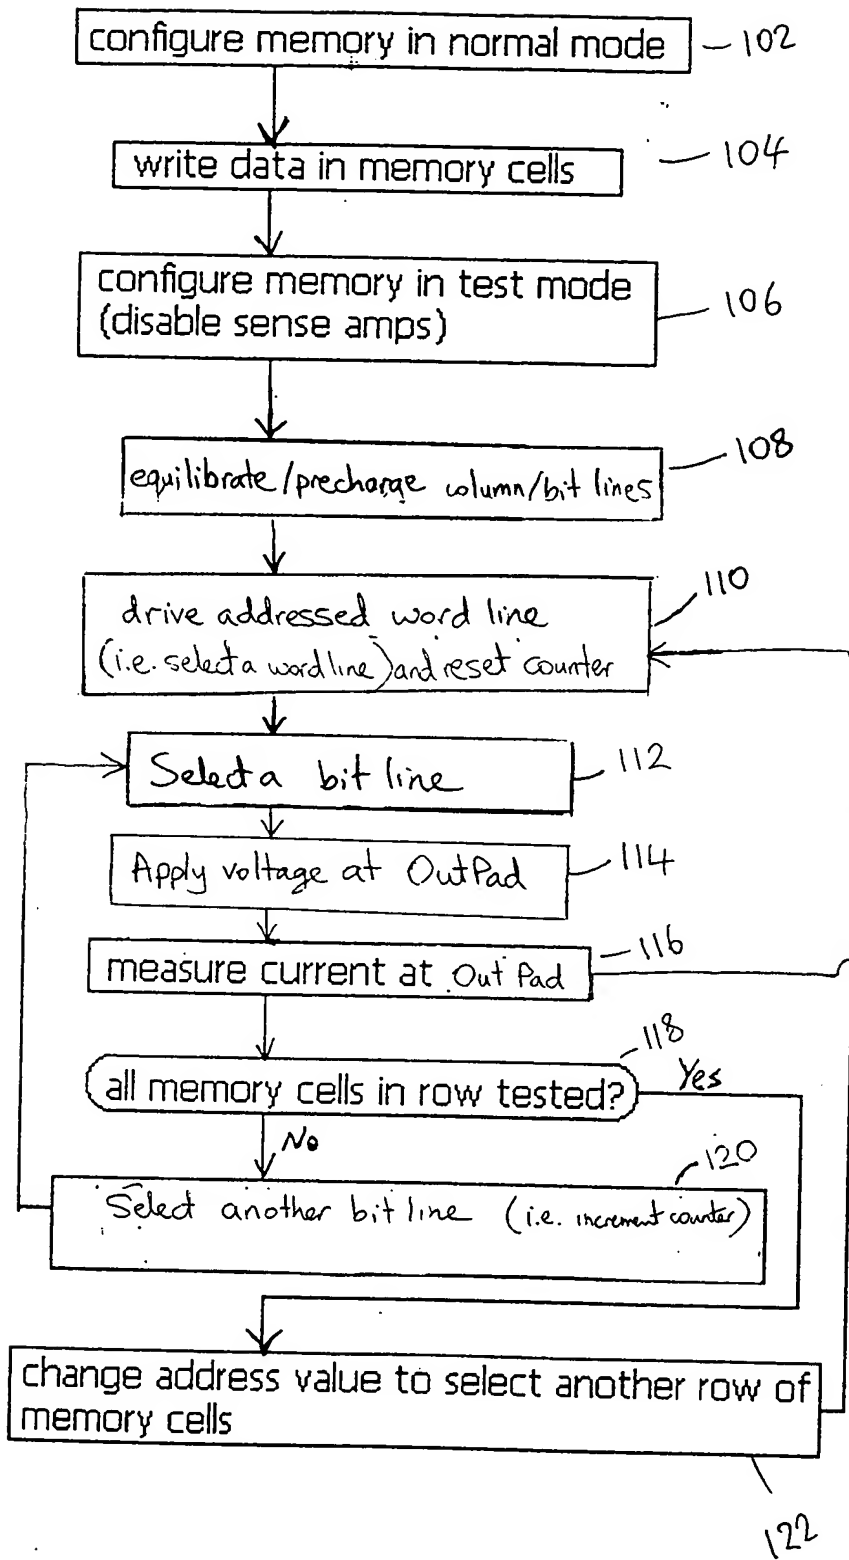 configure memory in normal mode
102
write data in memory cells
104
configure memory in test mode
(disable sense amps)
106
equilibrate/precharge column/bit lines
108
drive addressed word line
(i.e. select a word line) and reset counter
110
Select a bit line
112
Apply voltage at OutPad
114
measure current at Out Pad
116
all memory cells in row tested?
118
Yes
No
Select another bit line (i.e. increment counter)
120
change address value to select another row of
memory cells
122